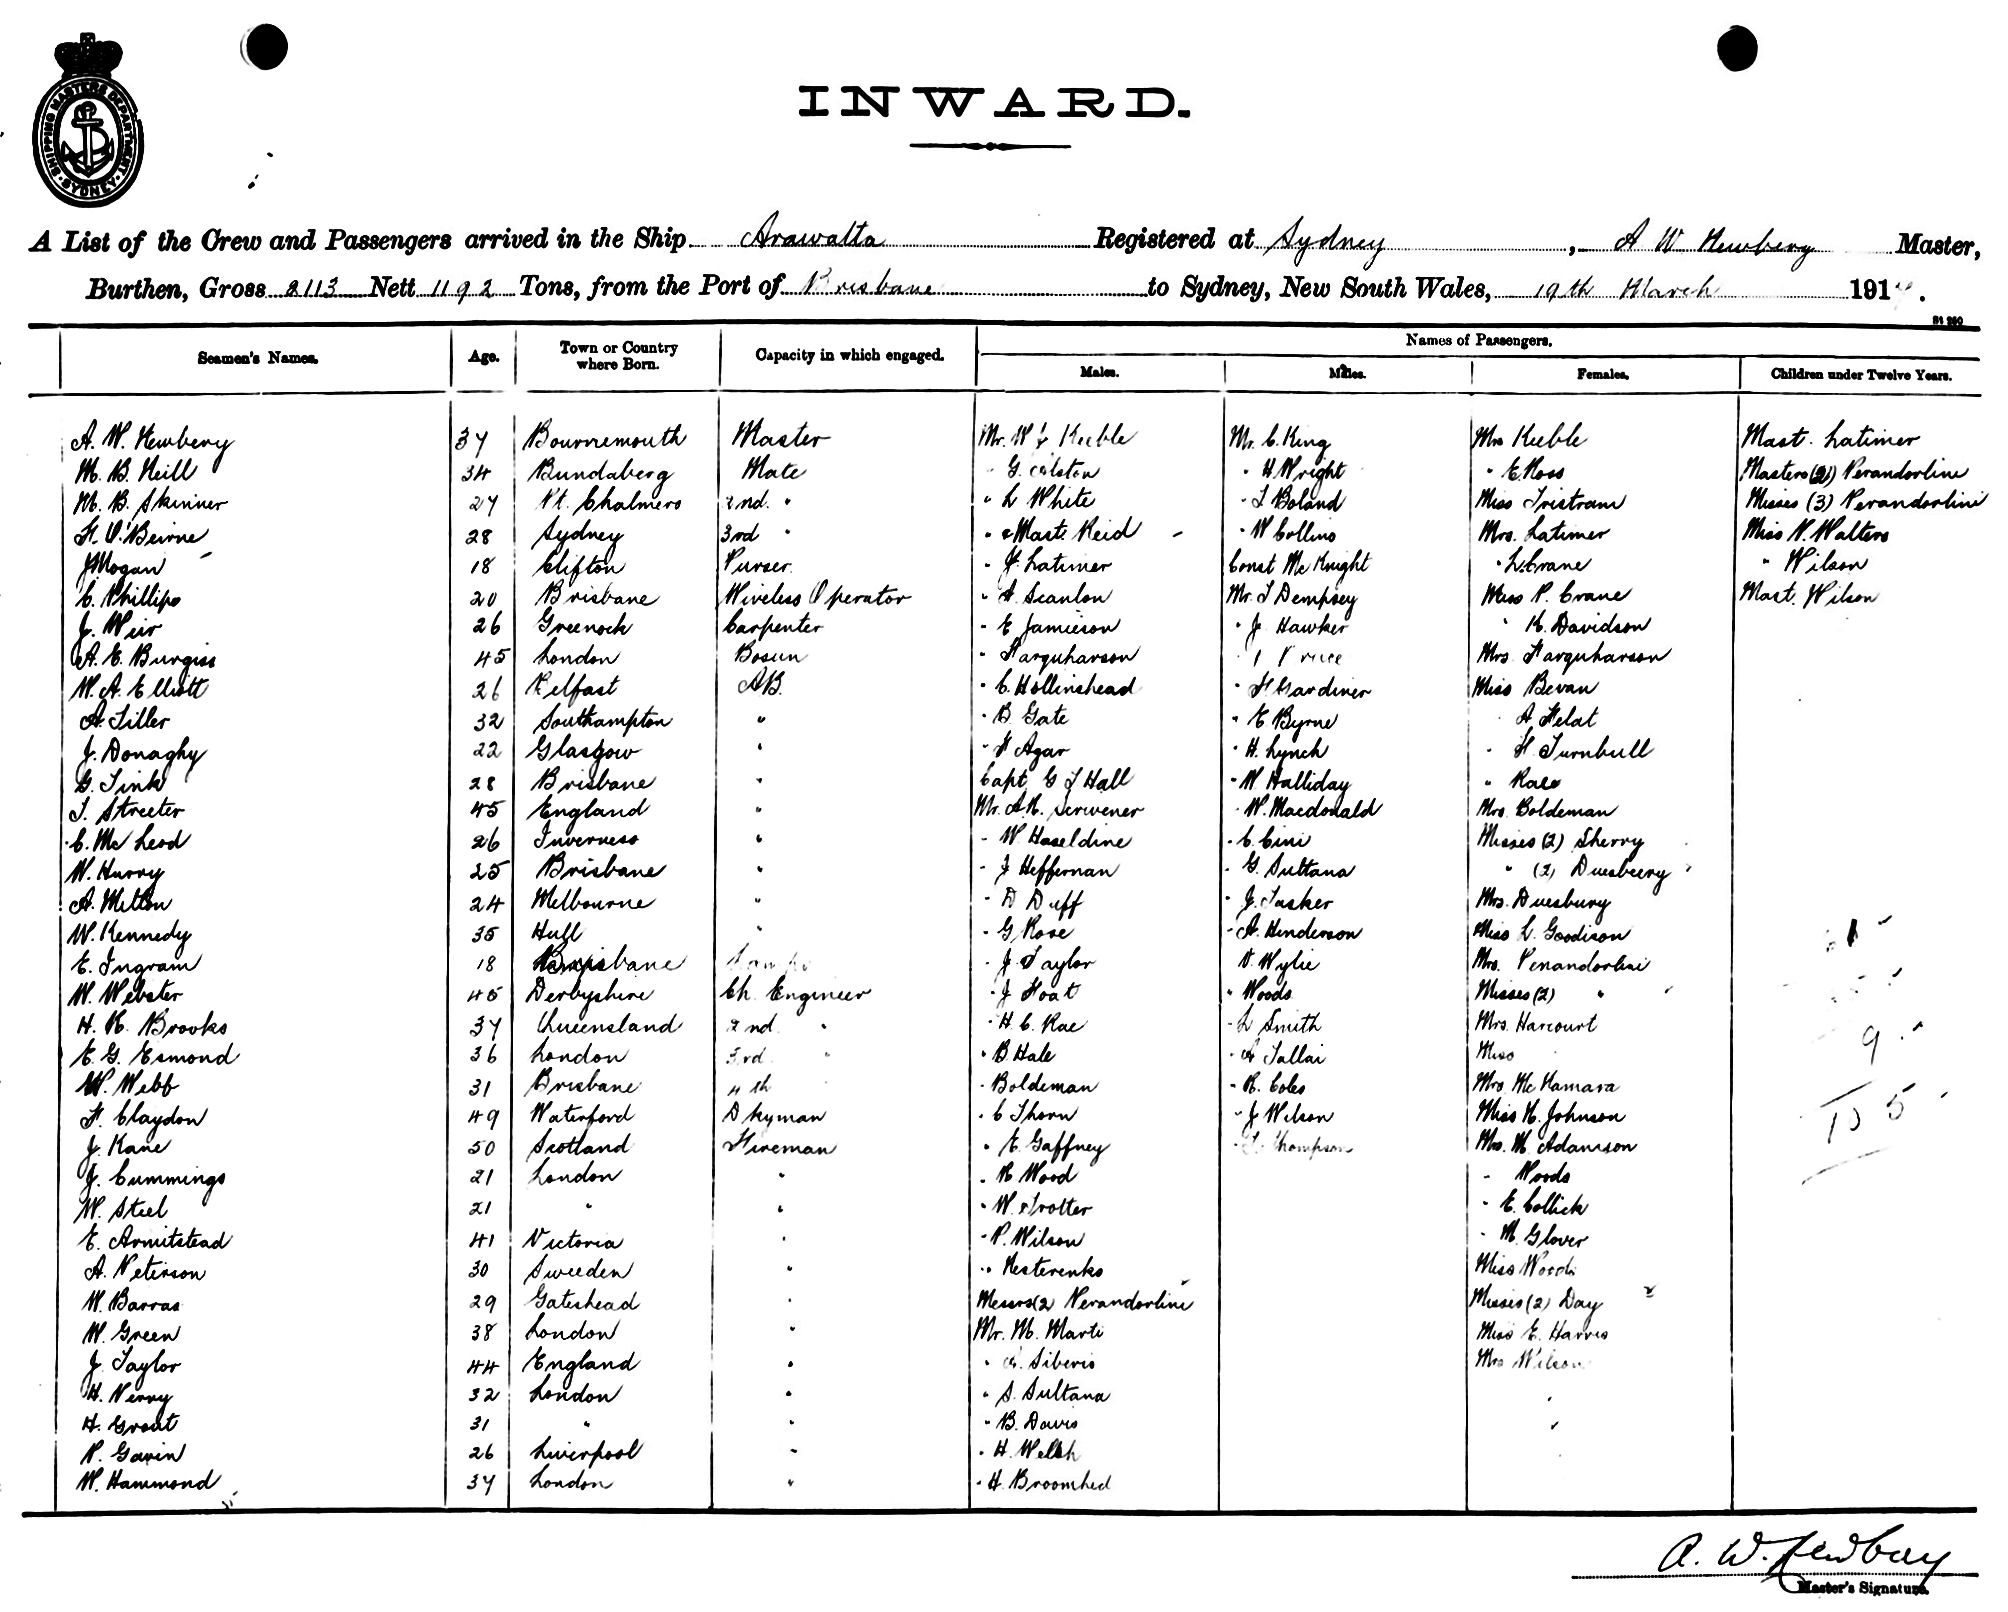 SHIPPING MASTERS DEPARTMENT SYDNEY
INWARD.
A List of the Crew and Passengers arrived in the Ship Arawatta Registered at Sydney, A W Newbery Master,
Burthen, Gross 2113 Nett 1192 Tons, from the Port of Brisbane to Sydney, New South Wales, 19th March 191
Seamen's Names. Age. Town or Country where Born. Capacity in which engaged. Names of Passengers.
Males. Males. Females. Children under Twelve Years.
A. W. Newbery 37 Bournemouth Master Mr. W Keeble Mr. C. King Mrs Keeble Mast. Latimer
M. B. Neill 34 Bundaberg Mate " G. " H Wright " E Ross Masters (2) Perandorlini
M. B. Skinner 27 Pt. Chalmers 2nd. " " L White " T Boland Miss Tristram Misses (3) Perandorlini
F. O'Beirne 28 Sydney 3rd " " Mast. Reid " W Collins Mrs. Latimer Miss N. Walters
J Mogan 18 Clifton Purser. " J. Latimer Const McKnight " L. Crane " Wilson
C. Phillips 20 Brisbane Wireless Operator " A. Scanlon Mr. T Dempsey Miss P. Crane Mast. Wilson
J. Weir 26 Greenock Carpenter " E Jamieson " J Hawker " K. Davidson
A. E. Burgiss 45 London Bosun " Farquharson " Mrs. Farquharson
W. A. Elliott 26 Belfast AB. " C. Hollinshead " F Gardiner Miss Bevan
A. Tiller 32 Southampton " " B. Gate " E Byrne A Felat
J. Donaghy 22 Glasgow " " F Agar " H. Lynch " F. Turnbull
G. Tink 28 Brisbane " Capt G T Hall " W Halliday "
T. Streeter 45 England " Mr. A. K. Scrivener " W. Macdonald Mrs. Boldeman
C. McLeod 26 Inverness " " W Haseldine " C. Cini Misses (2) Sherry
W. Hurry 25 Brisbane " " J Heffernan " G. Sultana " (2) Duesbeery
A. Melton 24 Melbourne " " D Duff " J. Tasker Mrs. Duesbury
W. Kennedy 35 Hull " " G Rose " A. Henderson Miss L. Goodison
E. Ingram 18 Brisbane " J Taylor V. Wylie Mrs. Perandorlini
W. Webster 45 Derbyshire Ch. Engineer " J Foat " Woods Misses (2) "
H. R. Brooks 37 Queensland 2nd. " " H. C. Rae " L Smith Mrs. Harcourt 9
E. G. Esmond 36 London 3rd. " " B Hale " A Tallai Miss
W. Webb 31 Brisbane 4th " Boldeman " R. Coles Mrs. McNamara
F. Claydon 49 Waterford Dkyman " C Thorn " J Wilson Miss K. Johnson 155
J. Kane 50 Scotland Fireman " E. Gaffney " Thompson Mrs. M. Adamson
J. Cummings 21 London " " R Wood " Woods
W. Steel 21 " " " W. Trotter " E. Collick
E. Armitstead 41 Victoria " " P. Wilson " M. Glover
A. Peterson 30 Sweeden " " Nesterenko Miss Woods
W. Barras 29 Gateshead " Messrs (2) Perandorlini Misses (2) Day
W. Green 38 London " Mr. M. Marti Miss E. Harris
J. Taylor 44 England " " Siberis Mrs Wilson
H. Perry 32 London " " S. Sultana
H. Grout 31 " " " B. Davis
P. Gavin 26 Liverpool " " H. Welsh
W. Hammond 37 London " " H. Broomhed
A. W. Newbery
Master's Signature.